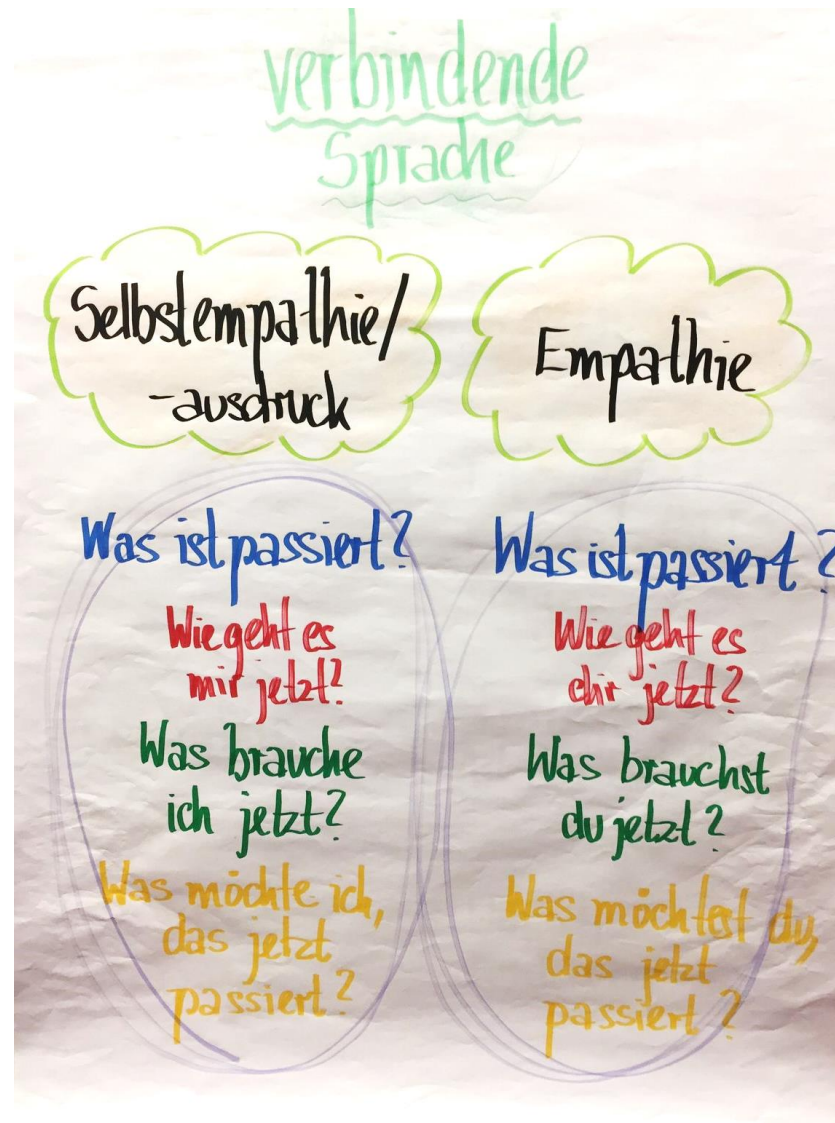 verbindende
Sprache
Selbstempathie/
-ausdruck
Was ist passiert?
Wie geht es
mir jetzt?
Was brauche
ich jetzt?
Was möchte ich,
das jetzt
passiert?
Empathie
Was ist passiert?
Wie geht es
dir jetzt?
Was brauchst
du jetzt?
Was möchtest du,
das jetzt
passiert?